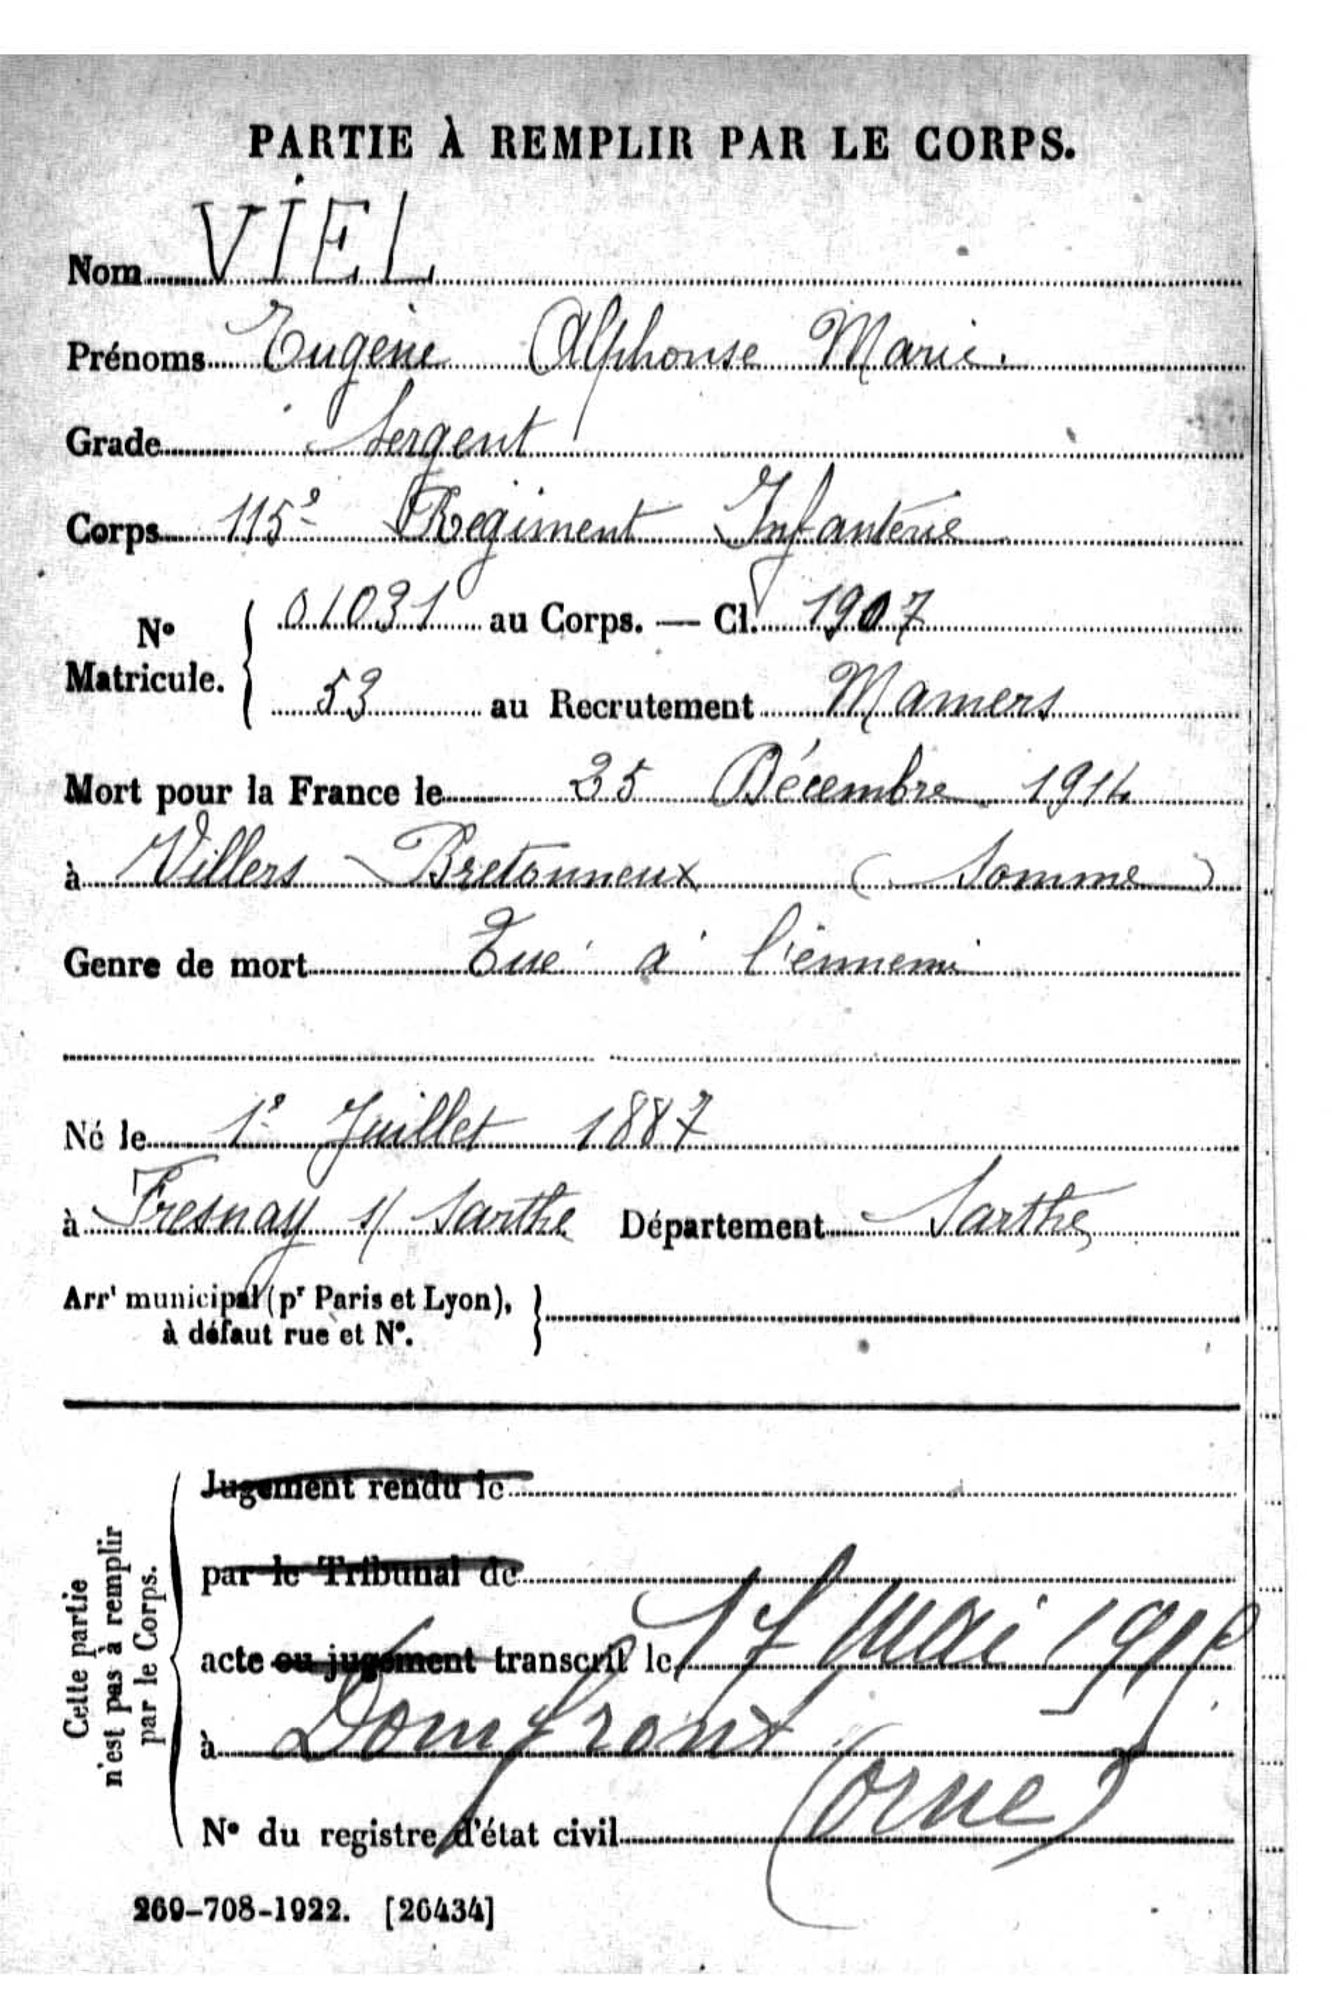 PARTIE À REMPLIR PAR LE CORPS.
Nom VIEL
Prénoms Eugène Alphonse Marie.
Grade Sergent
Corps 115e Régiment Infanterie
N° Matricule. 01031 au Corps. — Cl. 1907
53 au Recrutement Mamers
Mort pour la France le 25 Décembre 1914
à Villers Bretonneux (Somme)
Genre de mort Tué à l'ennemi
Né le 1e Juillet 1887
à Fresnay s/ Sarthe Département Sarthe
Arrt municipal (pr Paris et Lyon),
à défaut rue et N°.
Cette partie
n'est pas à remplir
par le Corps.
Jugement rendu le
par le Tribunal de
acte ou jugement transcrit le 17 mai 1915
à Domfront
(Orne)
N° du registre d'état civil
269-708-1922. [26434]